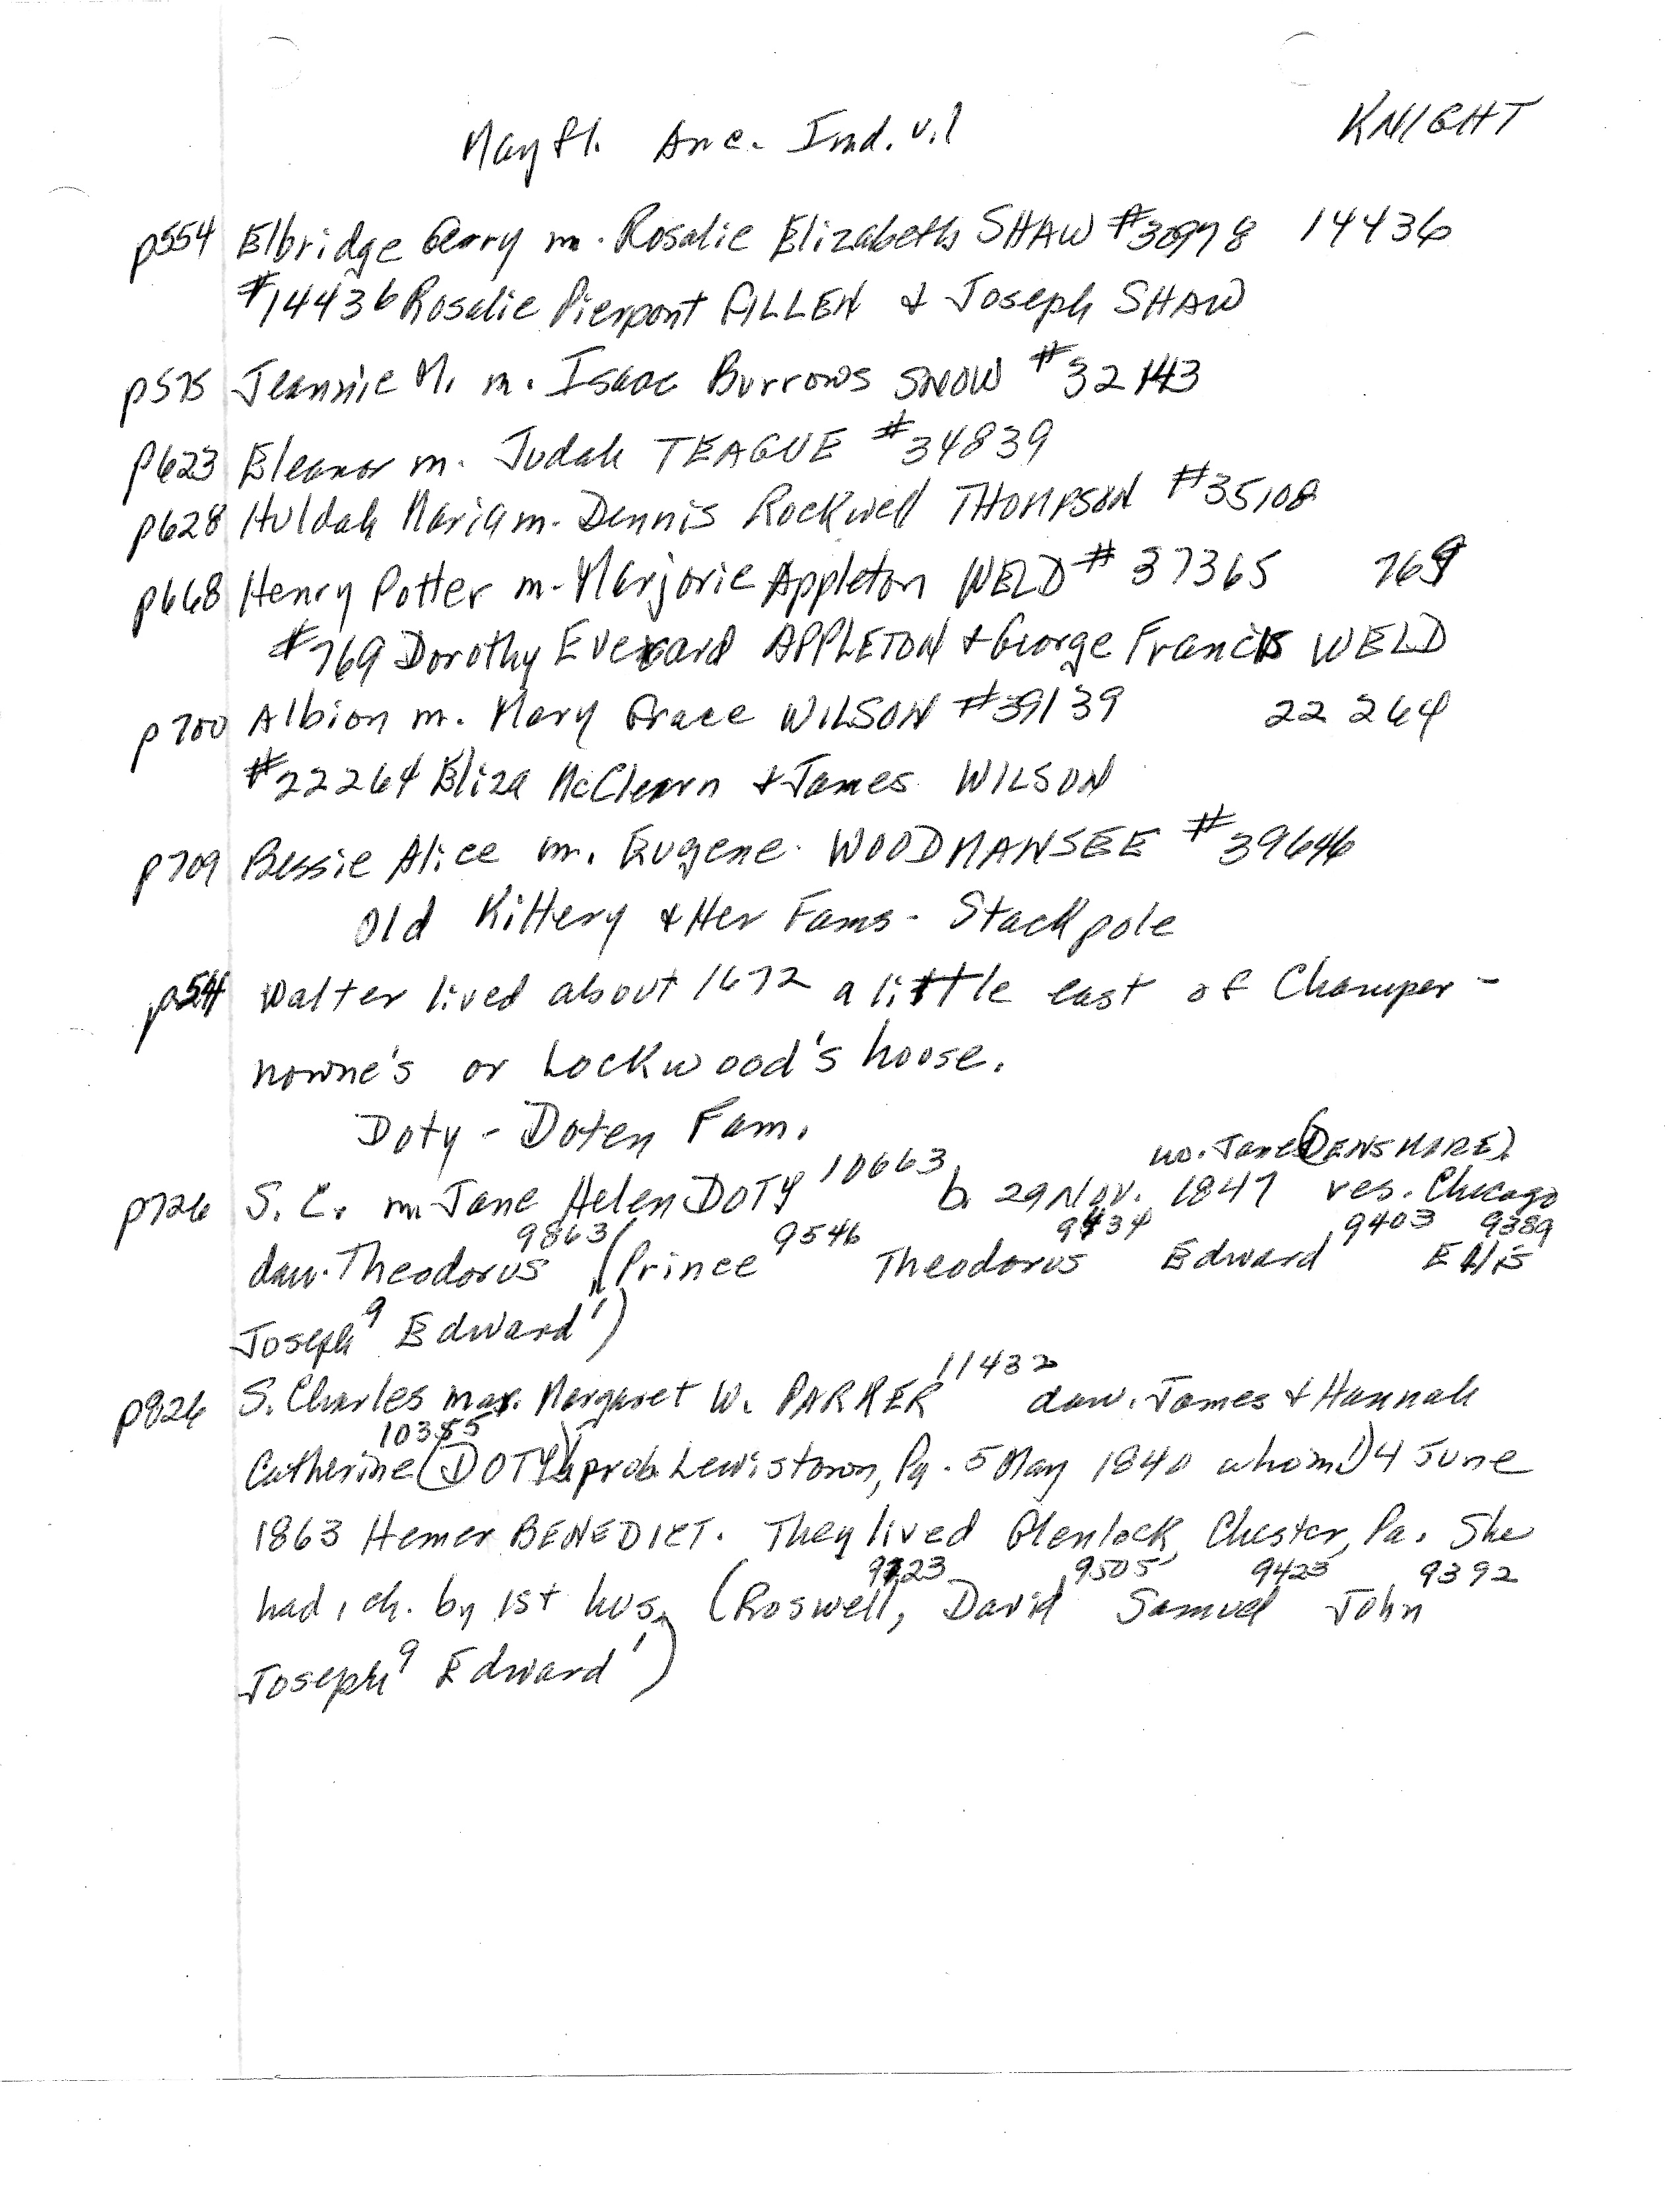 KNIGHT
Mayfl. Anc. Ind. v.1
p554 Elbridge Gerry m. Rosalie Elizabeth SHAW #30978 14436
#14436 Rosalie Pierpont FILLEN & Joseph SHAW
p575 Jeannie M. m. Isaac Burrows SNOW #32143
p623 Eleanor m. Judah TEAGUE #34839
p628 Huldah Maria m. Dennis Rockwell THOMPSON #35108
p668 Henry Potter m. Marjorie Appleton WELD # 37365 769
#769 Dorothy Everard APPLETON & George Francis WELD
p700 Albion m. Mary Grace WILSON #39139 22 264
#22264 Eliza McClearn & James WILSON
p709 Bessie Alice m. Eugene WOODMANSEE #39646
Old Kittery & Her Fams - Stackpole
p54 Walter lived about 1672 a little east of Champer-
nowne's or Lockwood's house.
Doty - Doten Fam.
wo. Jane (DENSMORE)
p726 S. C. m Jane Helen DOTY 10663 b. 29 Nov. 1847 res. Chicago
9863 9546 9434 9403 9389
daw. Theodorus (Prince Theodorus Edward Ellis
Joseph 9 Edward 1)
p826 S. Charles mar. Margaret W. PARKER 11432 daw. James & Hannah
10355
Catherine (DOTY) b prob. Lewistown, Pa. 5 May 1840 who m 1) 4 June
1863 Hemer BENEDICT. They lived Glenlock, Chester, Pa. She
9723 9505 9423 9392
had 1 ch. by 1st hus. (Roswell, David Samuel John
Joseph 9 Edward 1)